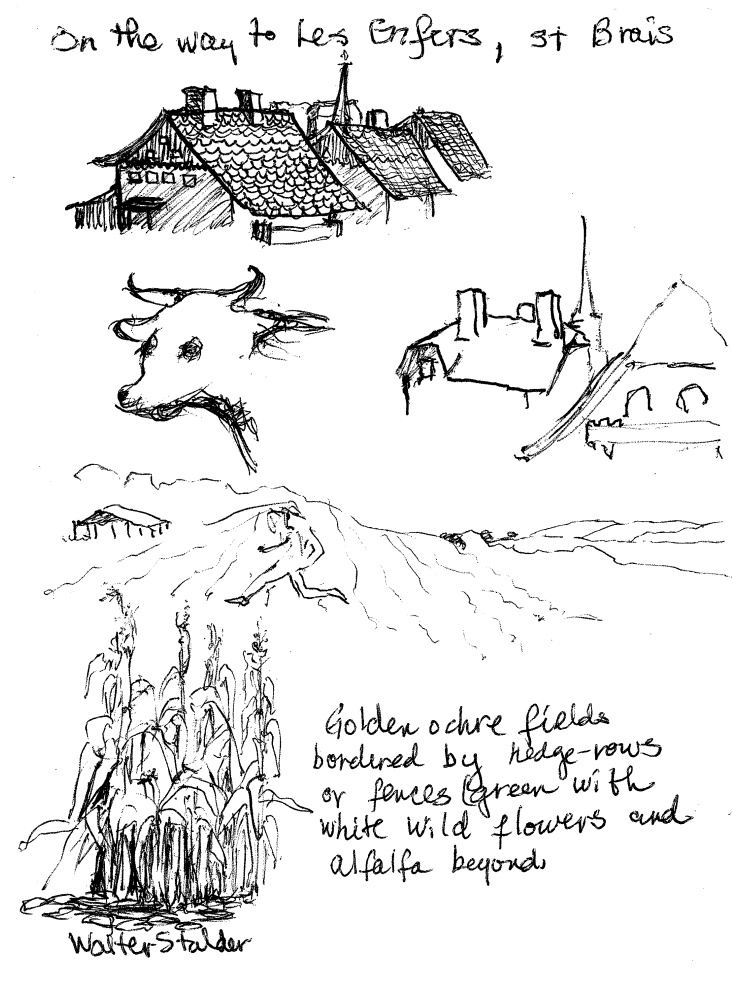 On the way to Les Enfers, St Brais
Golden ochre fields
bordered by hedge-rows
or fences (green with
white wild flowers and
alfalfa beyond.
Walter Stalder